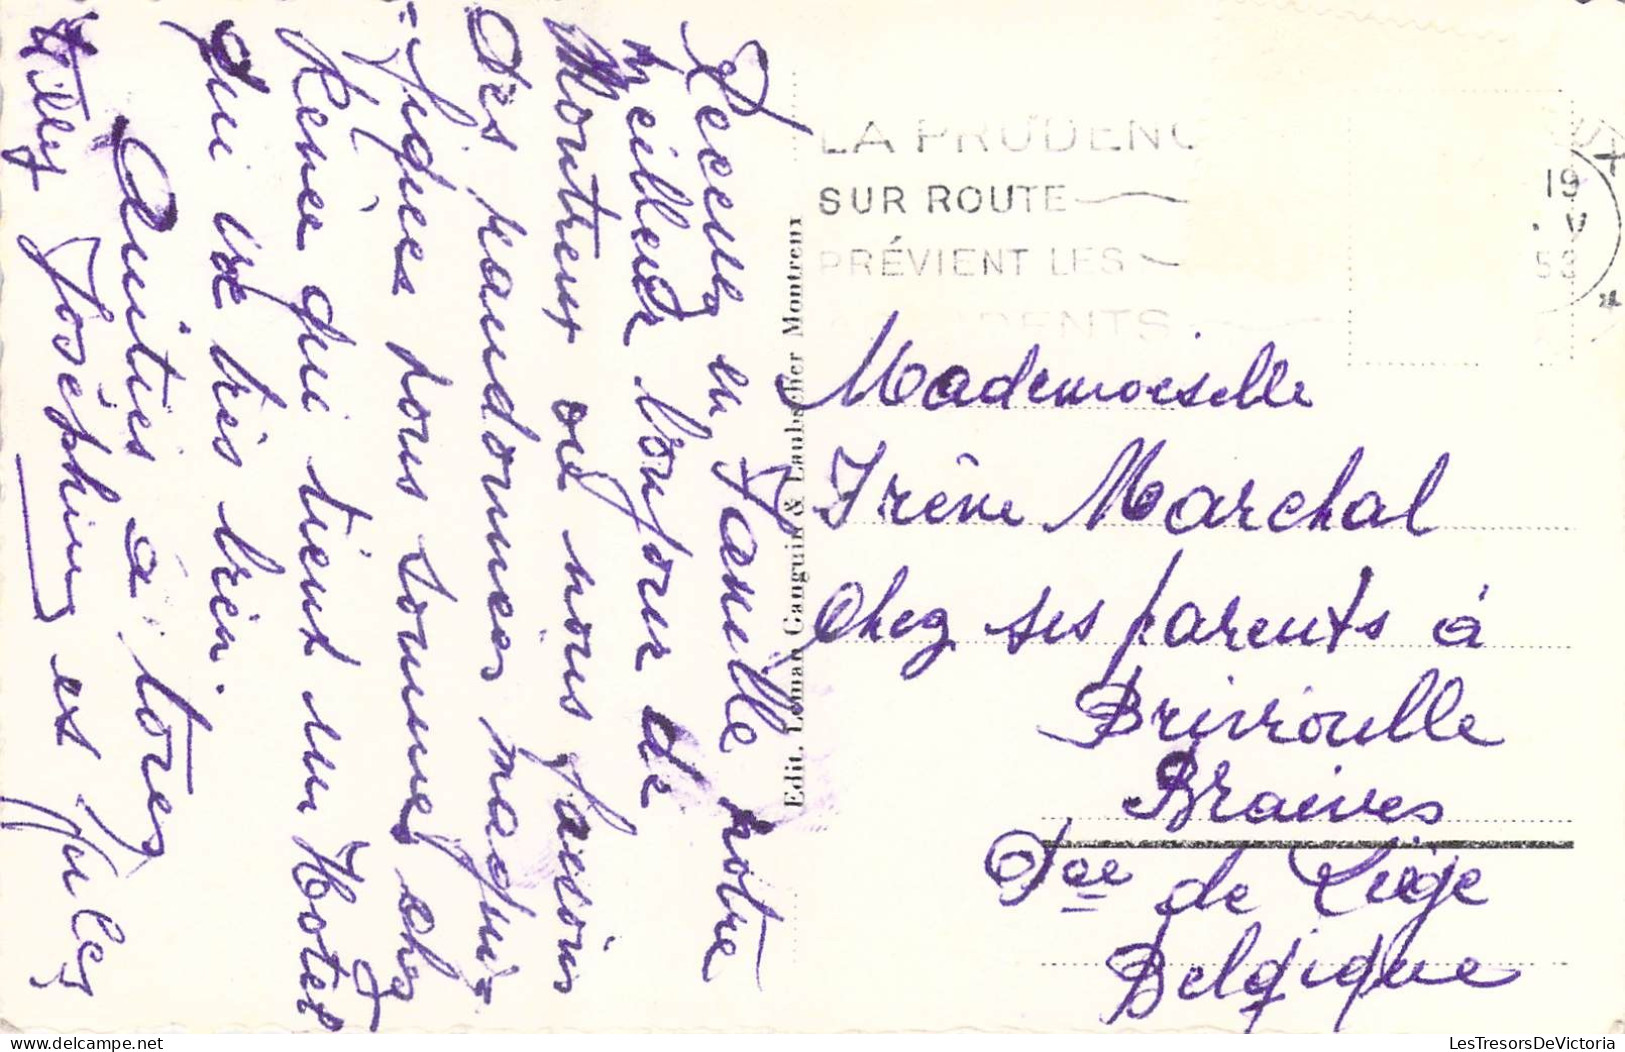 Recevez en famille notre
meilleur bonjour de
Montreux où nous faisons
des randonnées magnifi-
-fiques nous sommes chez
Renée qui tient un Hotel
qui va très bien.
Amitiés à tores
Joséphine et Jules
Edit. Léman Canguin & Laubscher Montreux
LA PRUDENC
SUR ROUTE
PRÉVIENT LES
DENTS
19
V
53
Mademoiselle
Irène Marchal
Chez ses parents à
Brivioulle
Braives
Pce de Liège
Belgique
LesTresorsDeVictoria